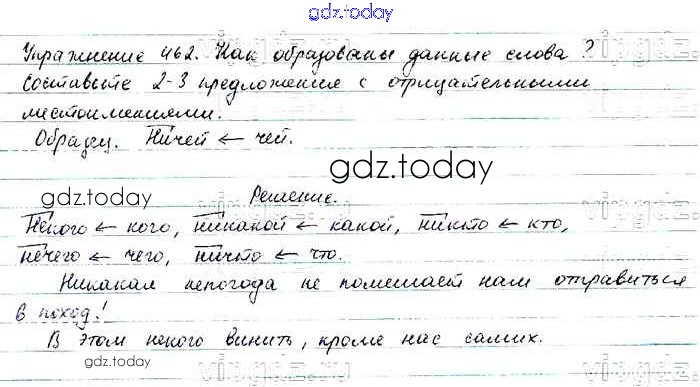 gdz.today
Упражнение 462. Как образованы данные слова?
Составьте 2-3 предложения с отрицательными
местоимениями.
Образец. Ничей ← чей.
gdz.today
gdz.today
Решение.
Некого ← кого, никакой ← какой, никто ← кто,
нечего ← чего, ничто ← что.
Никакая непогода не помешает нам отправиться
в поход!
В этом некого винить, кроме нас самих.
gdz.today